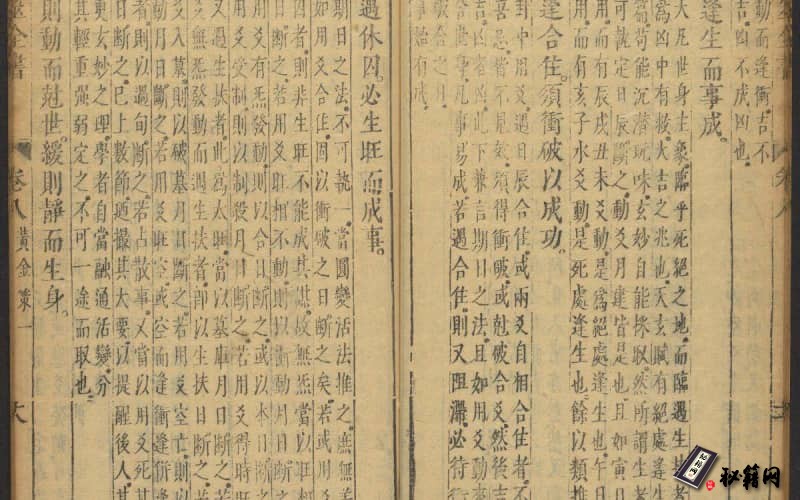 動而逢衝吉不
吉凶不成凶也
逢生而事成。
大凡世身主象臨乎死絕之地而臨遇生
為凶中有救大吉之兆也天玄賦有絕處逢生
篇苟能沉潛玩味玄妙自能採取然所謂生者
可執定日辰斷之動爻月建皆是也且如寅
用而有辰戌丑未爻動是為絕處逢生也午日
用而有亥子水爻動是死處逢生也餘以類推
逢合住。須衝破以成功。
卦中用爻遇日辰合住或兩爻自相合住者不
喜忌皆不見效須得衝破或尅破合爻然後吉
吉凶者凶此下兼言期日之法且如用爻動
卦凡事易成若遇合住則又阻滯必待
始有成
遇休囚。必生旺而成事。
期日之法不可執一當圓變活法推之庶無差
如用爻合住因以衝破之日斷之矣若或用爻
因者則非生旺不能成其故無炁當以旺
日斷之若用爻旺相不動則以衝動月日斷之
爻有炁發動則以合日斷之或以本日
用爻受制則以制殺月日斷之若用爻得時旺
又遇生扶者此為太旺當以墓庫月日斷之若
爻無炁發動而遇生扶者即以生扶月日斷之
爻入墓則以破墓月日斷之若用爻空亡則
月日斷之若用爻旺空或空而逢衝
者則以過旬斷之若占散事又當以用爻死
日斷之已上數節廼撮其大要以提醒後人其
更玄妙之理學者自當融通活變分
其輕重強弱定之不可一途而取也
則動而尅世。緩則靜而生身。
全書 卷八 黃金策一 六
秘籍网